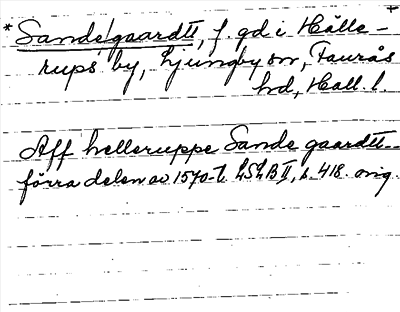 * Sande/gaardtt, f. gd i Hälle-
rups by, Ljungby sn, Faurås
hd, Hall. l.
Aff helleruppe Sande gaardtt
förra delen av 1570-t. LSLB II, s. 418. orig.